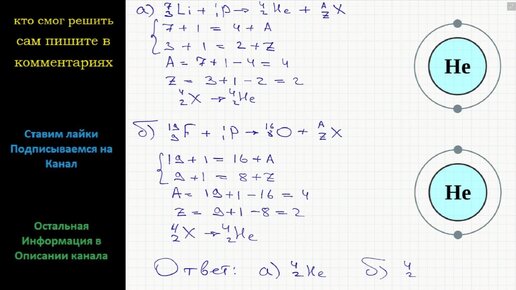 кто смог решить
сам пишите в
комментариях
Ставим лайки
Подписываемся на
Канал
Остальная
Информация в
Описании канала
а) ⁷₃Li + ¹₁P → ⁴₂He + ᴬ_Z X
{ 7 + 1 = 4 + A
3 + 1 = 2 + Z
A = 7 + 1 - 4 = 4
Z = 3 + 1 - 2 = 2
⁴₂X → ⁴₂He
б) ¹⁹₉F + ¹₁P → ¹⁶₈O + ᴬ_Z X
{ 19 + 1 = 16 + A
9 + 1 = 8 + Z
A = 19 + 1 - 16 = 4
Z = 9 + 1 - 8 = 2
⁴₂X → ⁴₂He
Ответ: а) ⁴₂He б) ⁴₂
He
He